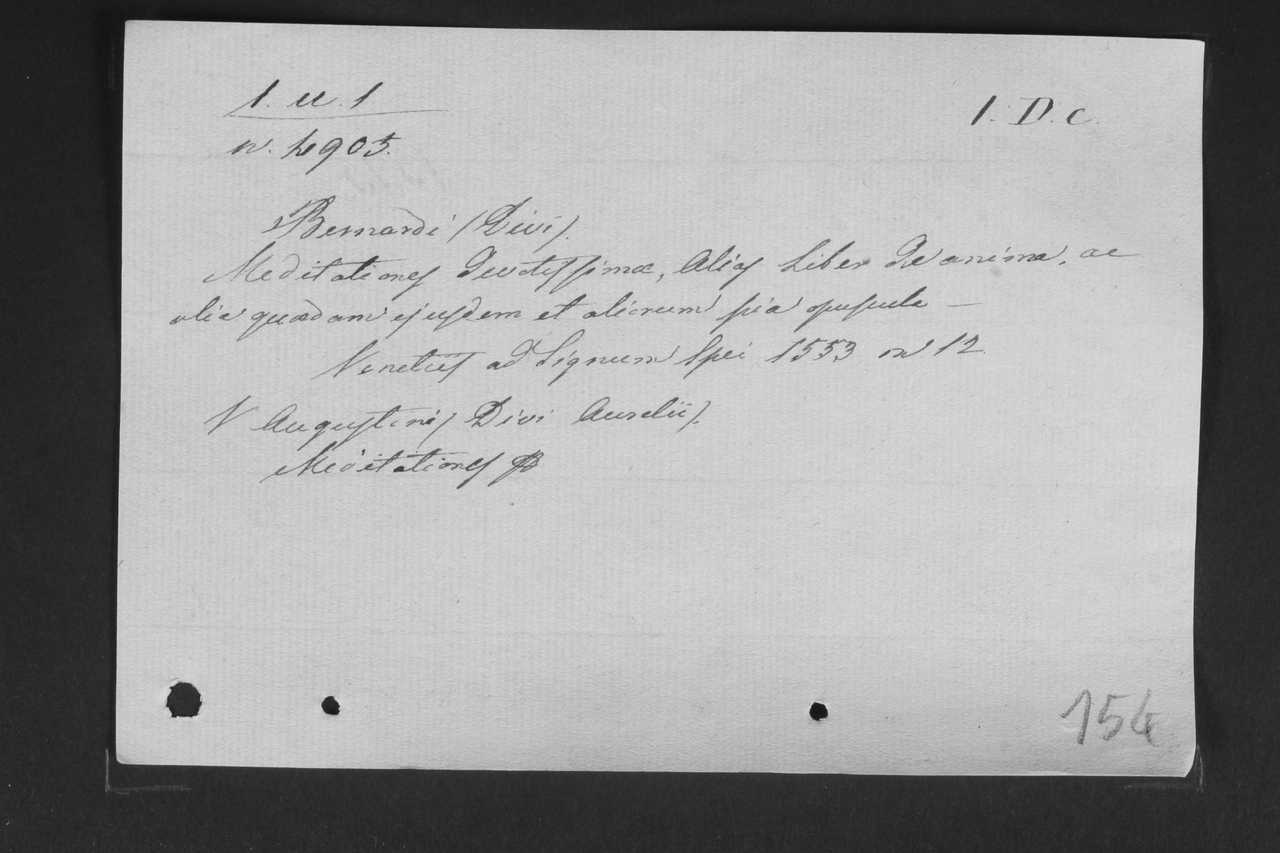 1. u. 1
1. D. c.
n. 4905.
Bernardi (Divi).
Meditationes devotissimæ, Alias Liber De anima, ac
alia quædam ejusdem et aliorum pia opuscula —
Venetiis ad Signum Spei 1553 in 12
V Augustini (Divi Aurelii).
Meditationes
154